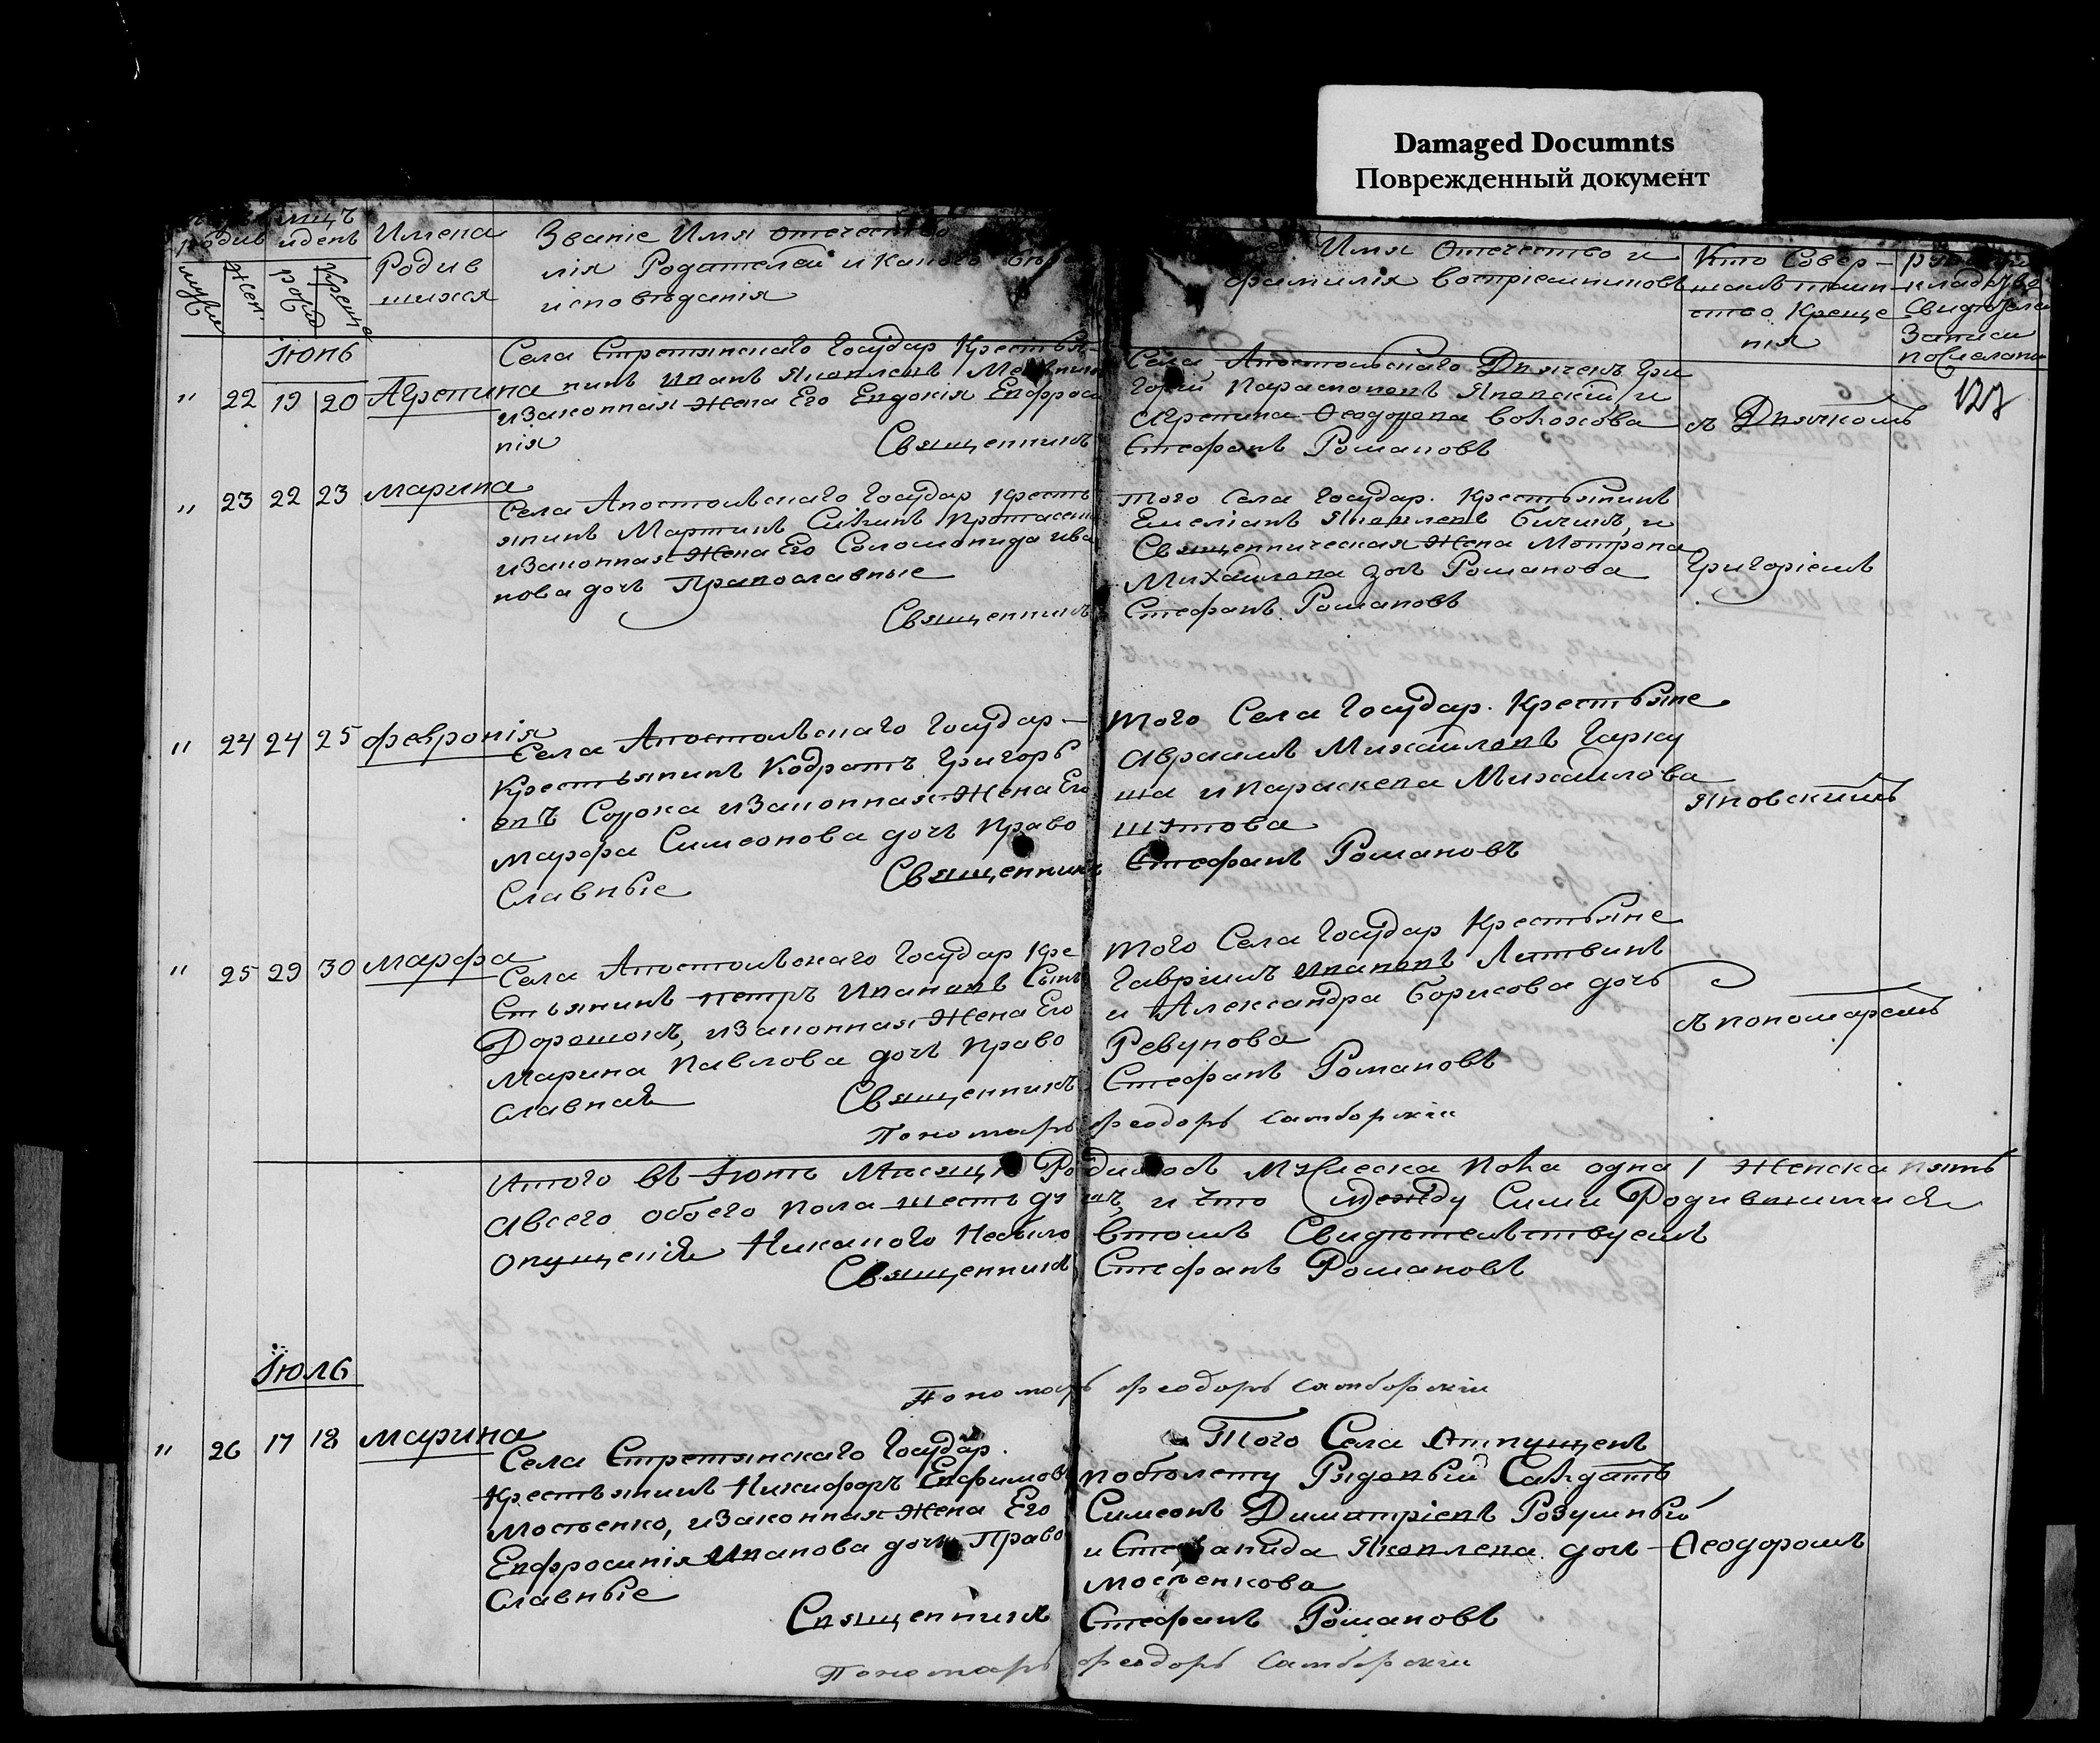 Damaged Documnts
Поврежденный документ
Имена
Родив
шихся
Званіе Имя отечество
лія Родителей и какого
исповѣданія
Имя Отечество и
фамилія воспріемниковъ
Кто Совер-
шалъ таин-
ство Креще
нія
Записи
по желанію
муж
Жен.
рожд
Креще
Іюнь
" 22 19 20 Агрепина
Села Стретинскаго Государ Крестья-
нинъ Иванъ Яковлевъ
изаконная Жена Его Евдокія Евфроси
нія
Священникъ
Села Апостольскаго Дьячекъ Гри
горій Парамоновъ Яновскій, и
Агрепина Ѳеодорова
Стефанъ Романовъ
ъ Дьячкомъ
127
" 23 22 23 Марина
Села Апостольскаго Государ Кресть
янинъ Мартинъ
изаконная Жена Его Соломонида Ива
нова дочь Православные
Священникъ
Того Села Государ. Крестьянинъ
Емеліанъ Яковлевъ Бичикъ, и
Священническая Жена Мотрона
Михайлова дочь Романова
Стефанъ Романовъ
Григоріемъ
" 24 24 25 Февронія
Села Апостольскаго Государ-
Крестьянинъ Кодратъ Григорь
евъ Сорока изаконная Жена Его
Марфа Симеонова дочь Право
Славные
Священникъ
Того Села Государ. Крестьяне
Авраамъ Михайловъ Гарку
ша и Параскева Михайлова
Шутова
Стефанъ Романовъ
Яновскимъ
" 25 29 30 Марфа
Села Апостольскаго Государ Кре
Стьянинъ Петръ Ивановъ Сынъ
Дорошокъ, изаконная Жена Его
Марина Павлова дочь Право
славная
Священникъ
Того Села Государ Крестьяне
Гавріилъ Ивановъ Литвинъ
и Александра Борисова дочь
Ревунова
Стефанъ Романовъ
Съ пономаремъ
Пономарь Феодоръ Самборскій
Итого въ Іюнь Мѣсяцѣ Родилось Мужеска Пола одна 1 Женска пять
Авсего обоего Пола шесть душъ, и что между Сими Родившимися
опущенія Никакого Небыло втомъ Свидѣтельствуемъ
Священникъ Стефанъ Романовъ
Пономарь Феодоръ Самборскій
Іюль
" 26 17 18 Марина
Села Стретинскаго Государ.
Крестьянинъ Никифоръ Евфимовъ
Мосьенко, изаконная Жена Его
Евфросинія Иванова дочь Право
Славные
Священникъ
Того Села Отпущенъ
побилету Рядовый Салдатъ
Симеонъ Димитріевъ Розумный
и Стефанида Яковлева доч-
мосьенкова
Стефанъ Романовъ
Ѳеодоромъ
Пономарь Феодоръ Самборскій